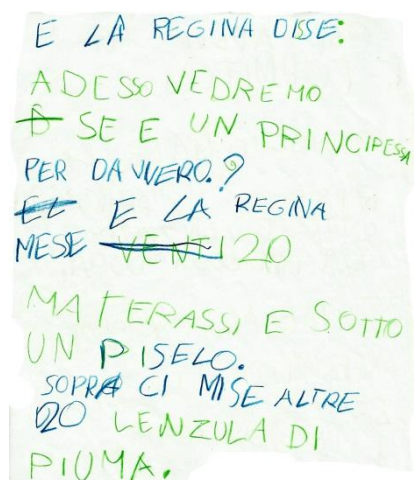 E LA REGINA DISSE:
ADESSO VEDREMO
SE E UN PRINCIPESSA
PER DAVVERO.?
E LA REGINA
MESE VENTI 20
MATERASSI E SOTTO
UN PISELO.
SOPRA CI MISE ALTRE
20 LENZULA DI
PIUMA.